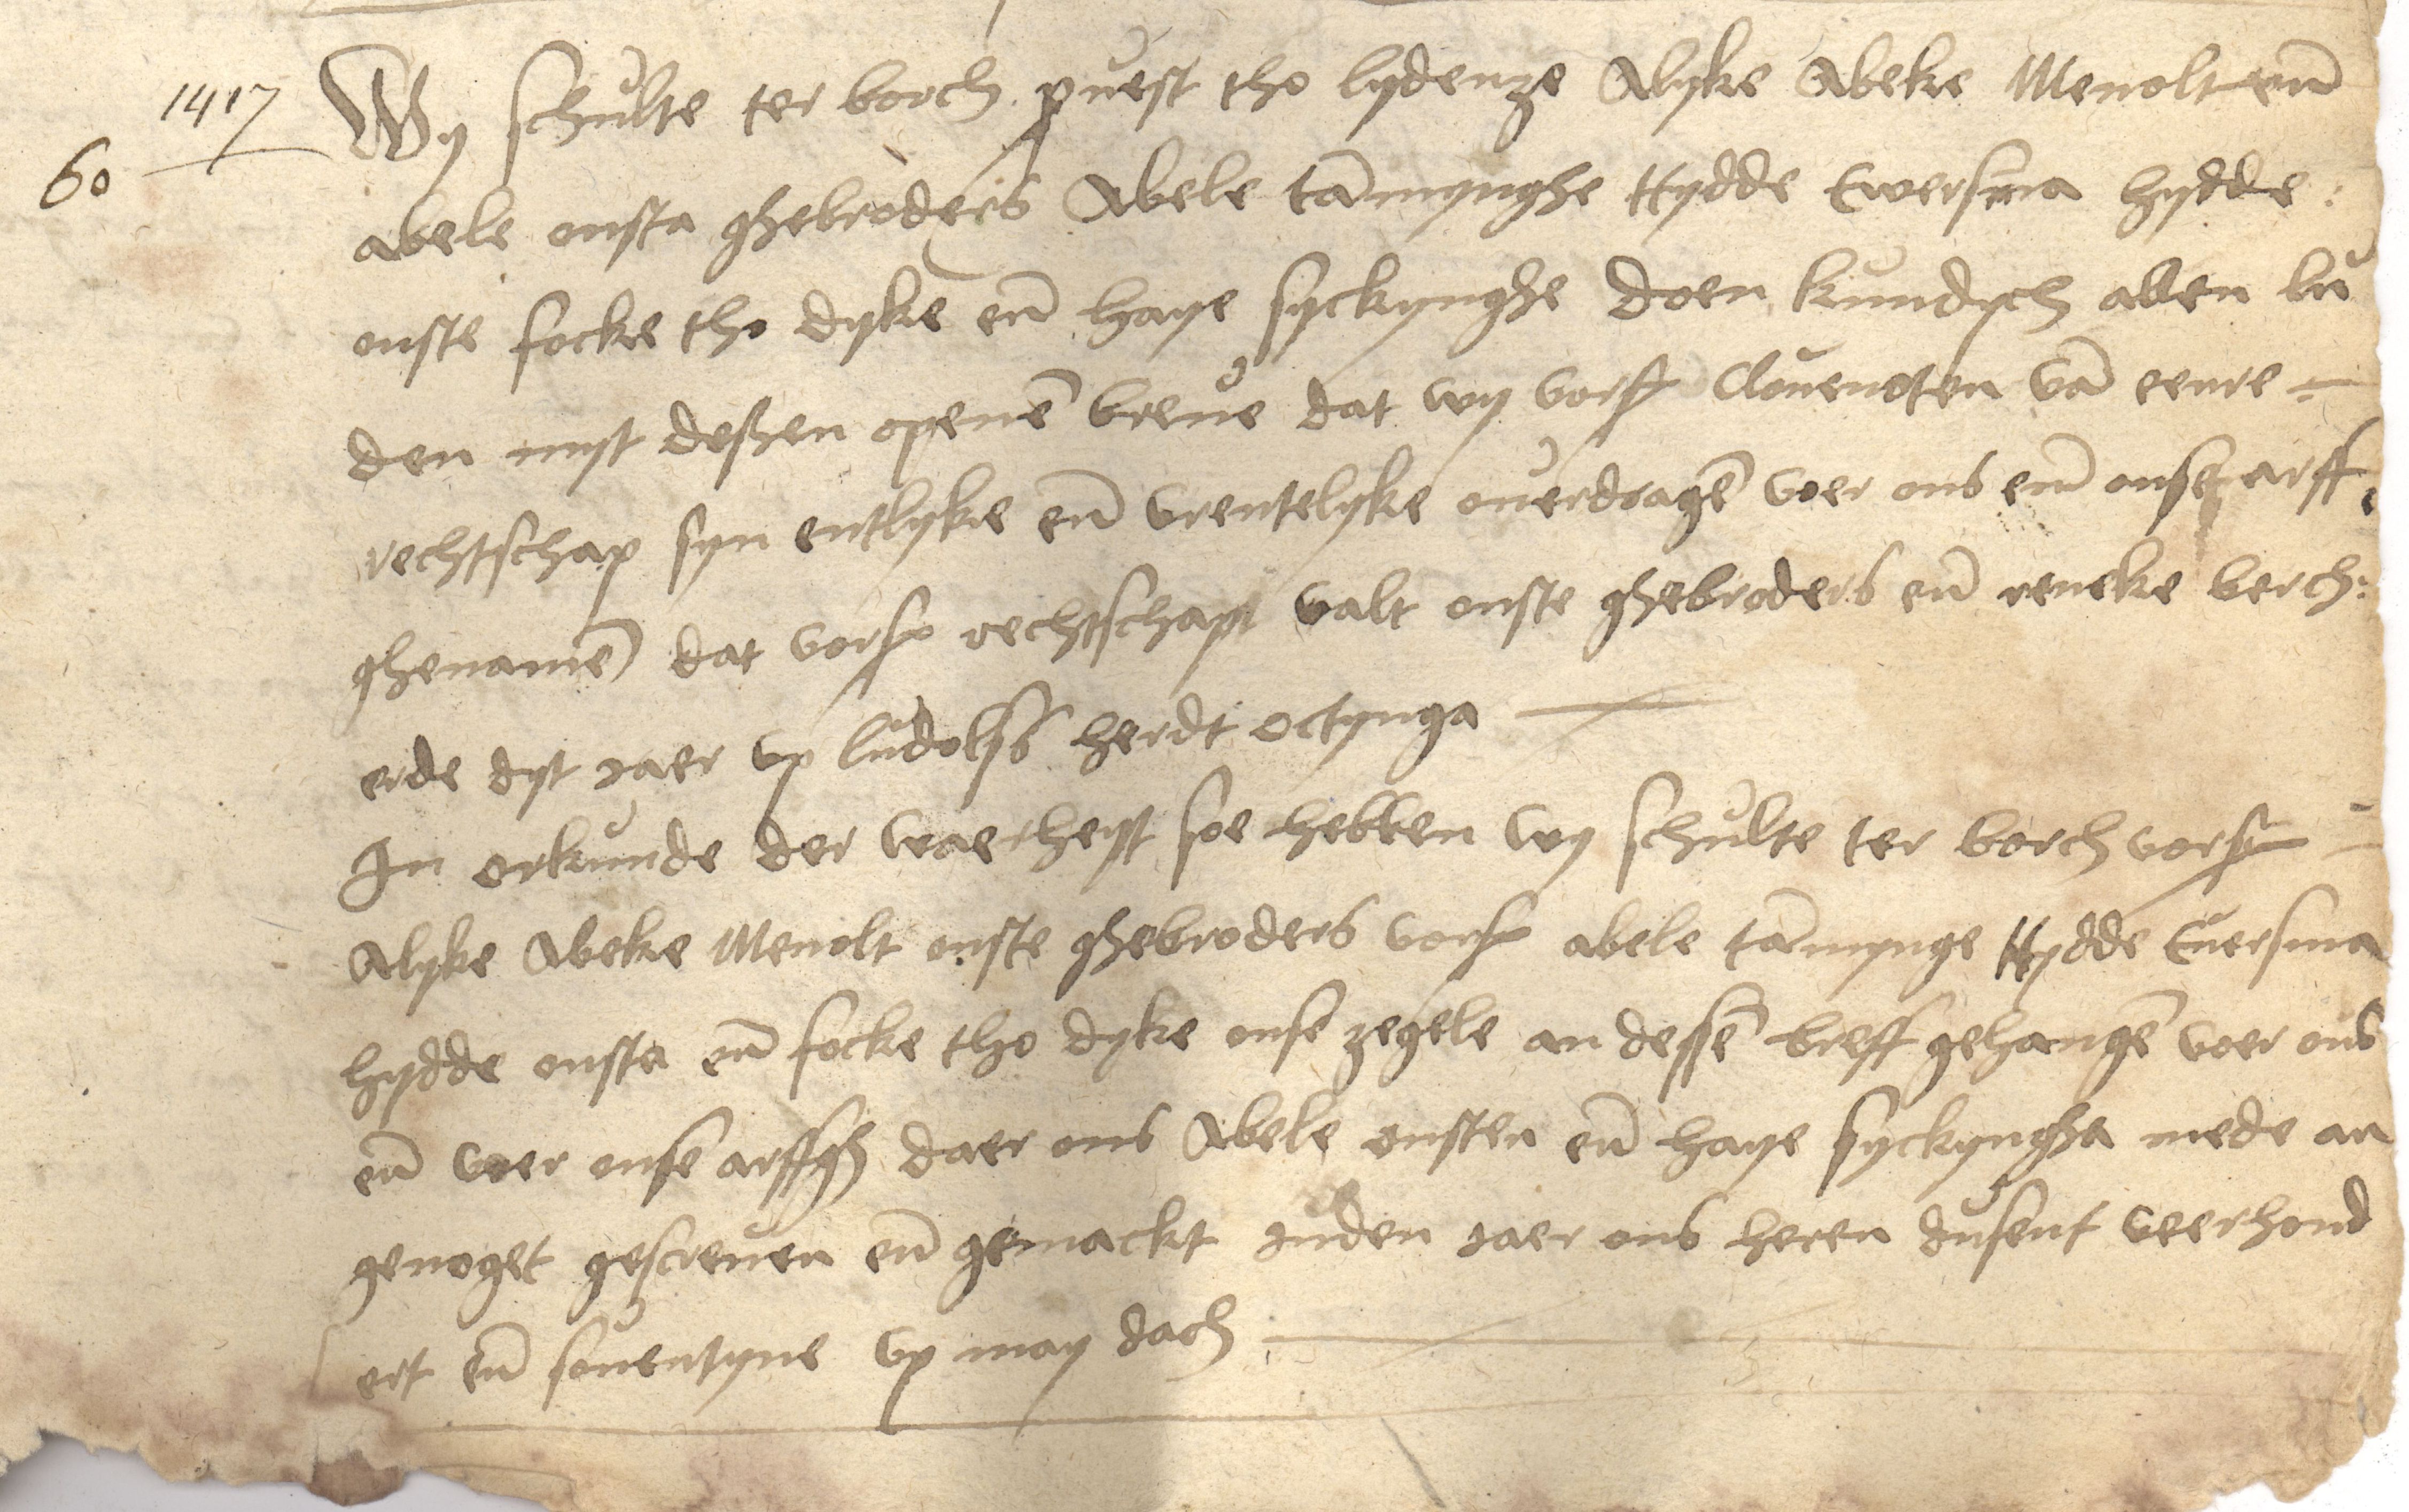 1417
60
Wy schulte ter borch pvest tho lydenze Alyke Abeke Menolt en̄
abele onsta ghebroders Abele tāmynghe Hydde Ewersma hydde
onste focke tho dyke en̄ haye syckynghe doen kundych allen lu
den myt deszen openē breue dat wy vorsz Clouenoten vā eenre
rechtschap syn entlyke en̄ vrentelyke ouerdragē voer ons en̄ onse arff
ghenamē dat vorsz rechtschap valt onste ghebroders en̄ reneke berch:
erde dyt jaer vp ludolfs herdt octynga
In orkunde der waerheyt soe hebben wy schulte ter borch vorsz
Alyke Abeke Menolt onste ghebroders vorsz abele tāmynge Hydde Euersma
hydde onsta en̄ focke tho dyke onse zegele an dessē breff gehangē voer ons
en̄ voer onse arffgh daer ons Abele onsten en̄ haye syckyngha mede an
genoget gescreuen en̄ gemackt inden jaer ons heren dusent veerhond
ert en̄ souentyne vp may dach